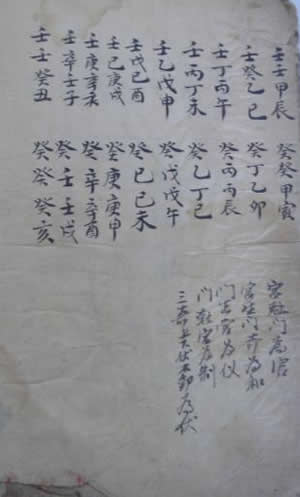 壬壬甲辰
壬癸乙巳
壬丁丙午
壬丙丁未
壬乙戊申
壬戊己酉
壬己庚戌
壬庚辛亥
壬辛壬子
壬壬癸丑
癸癸甲寅
癸丁乙卯
癸丙丙辰
癸乙丁巳
癸戊戊午
癸己己未
癸庚庚申
癸辛辛酉
癸壬壬戌
癸癸癸亥
宫门為
宫生门兮為和
门生宫為仪
门宫為制
三奇